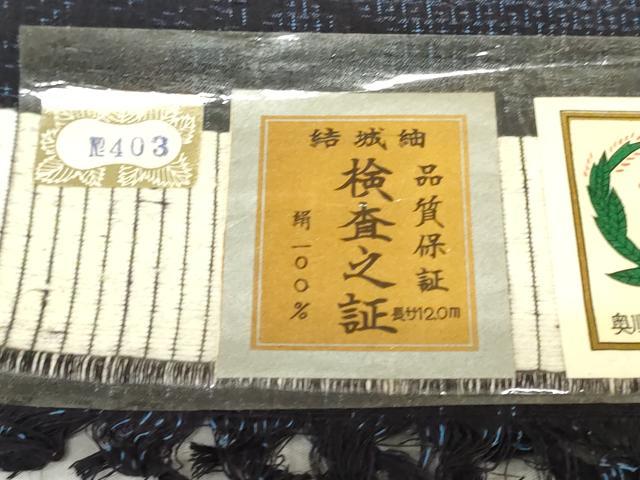 №403
結城紬
品質保証
検査之証
絹一〇〇%
長サ12.0m
奥順